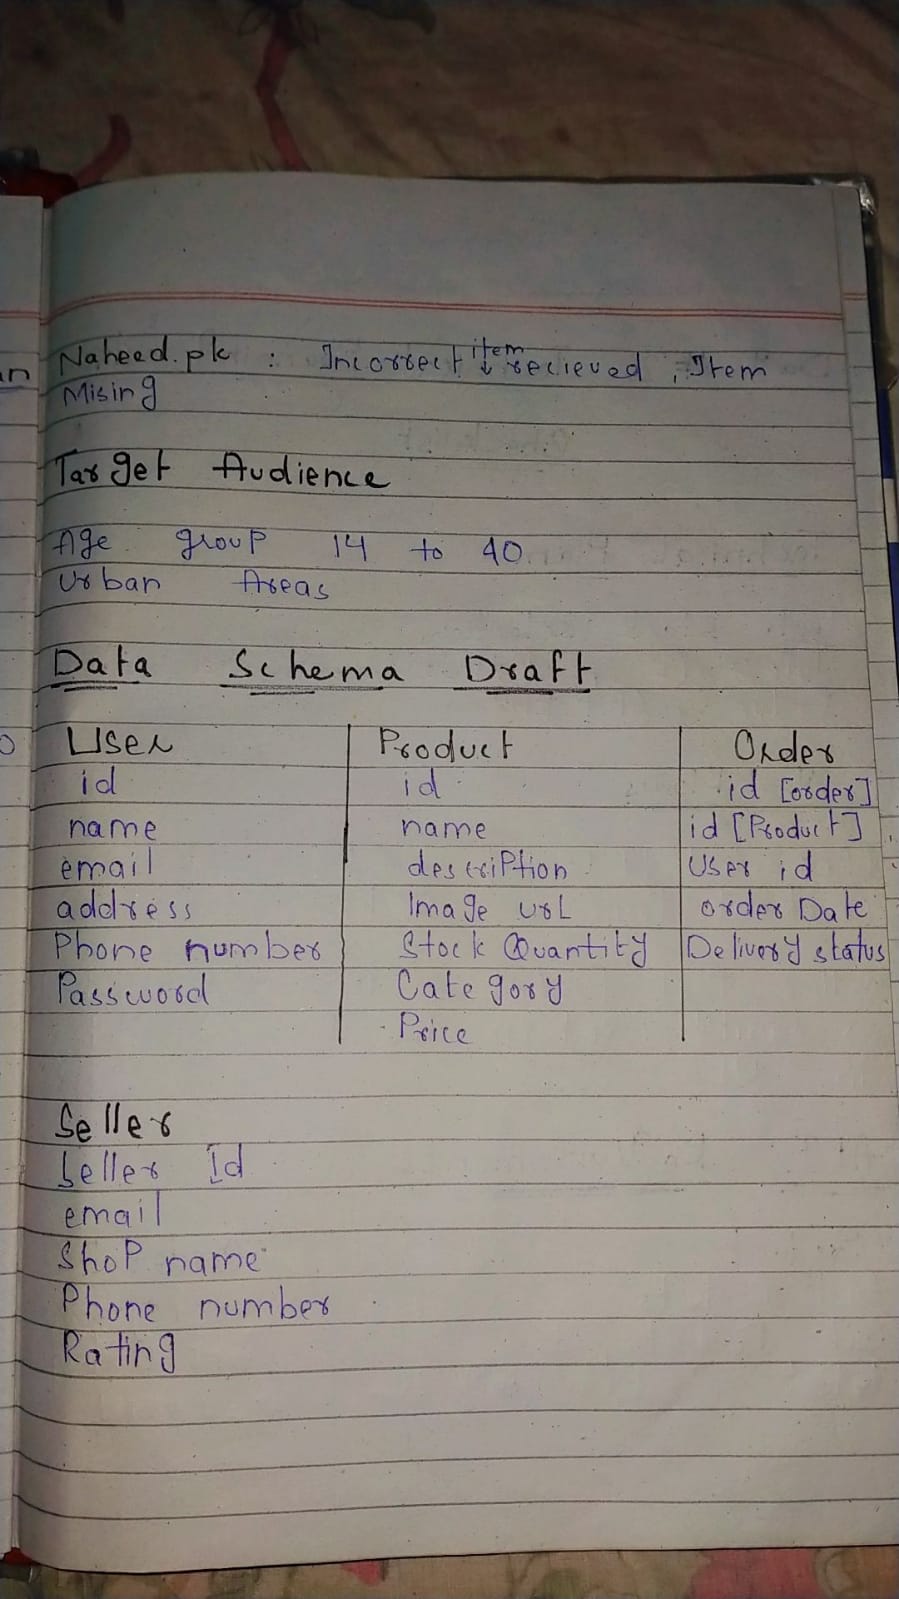 an
Naheed.pk : Incorrect item recieved, Item
Mising
Target Audience
Age group 14 to 40
Urban Areas
Data Schema Draft
User Product Order
id id id [order]
name name id [Product]
email description User id
address Image url order Date
Phone number Stock Quantity Delivery status
Password Category
Price
Seller
Seller Id
email
Shop name
Phone number
Rating